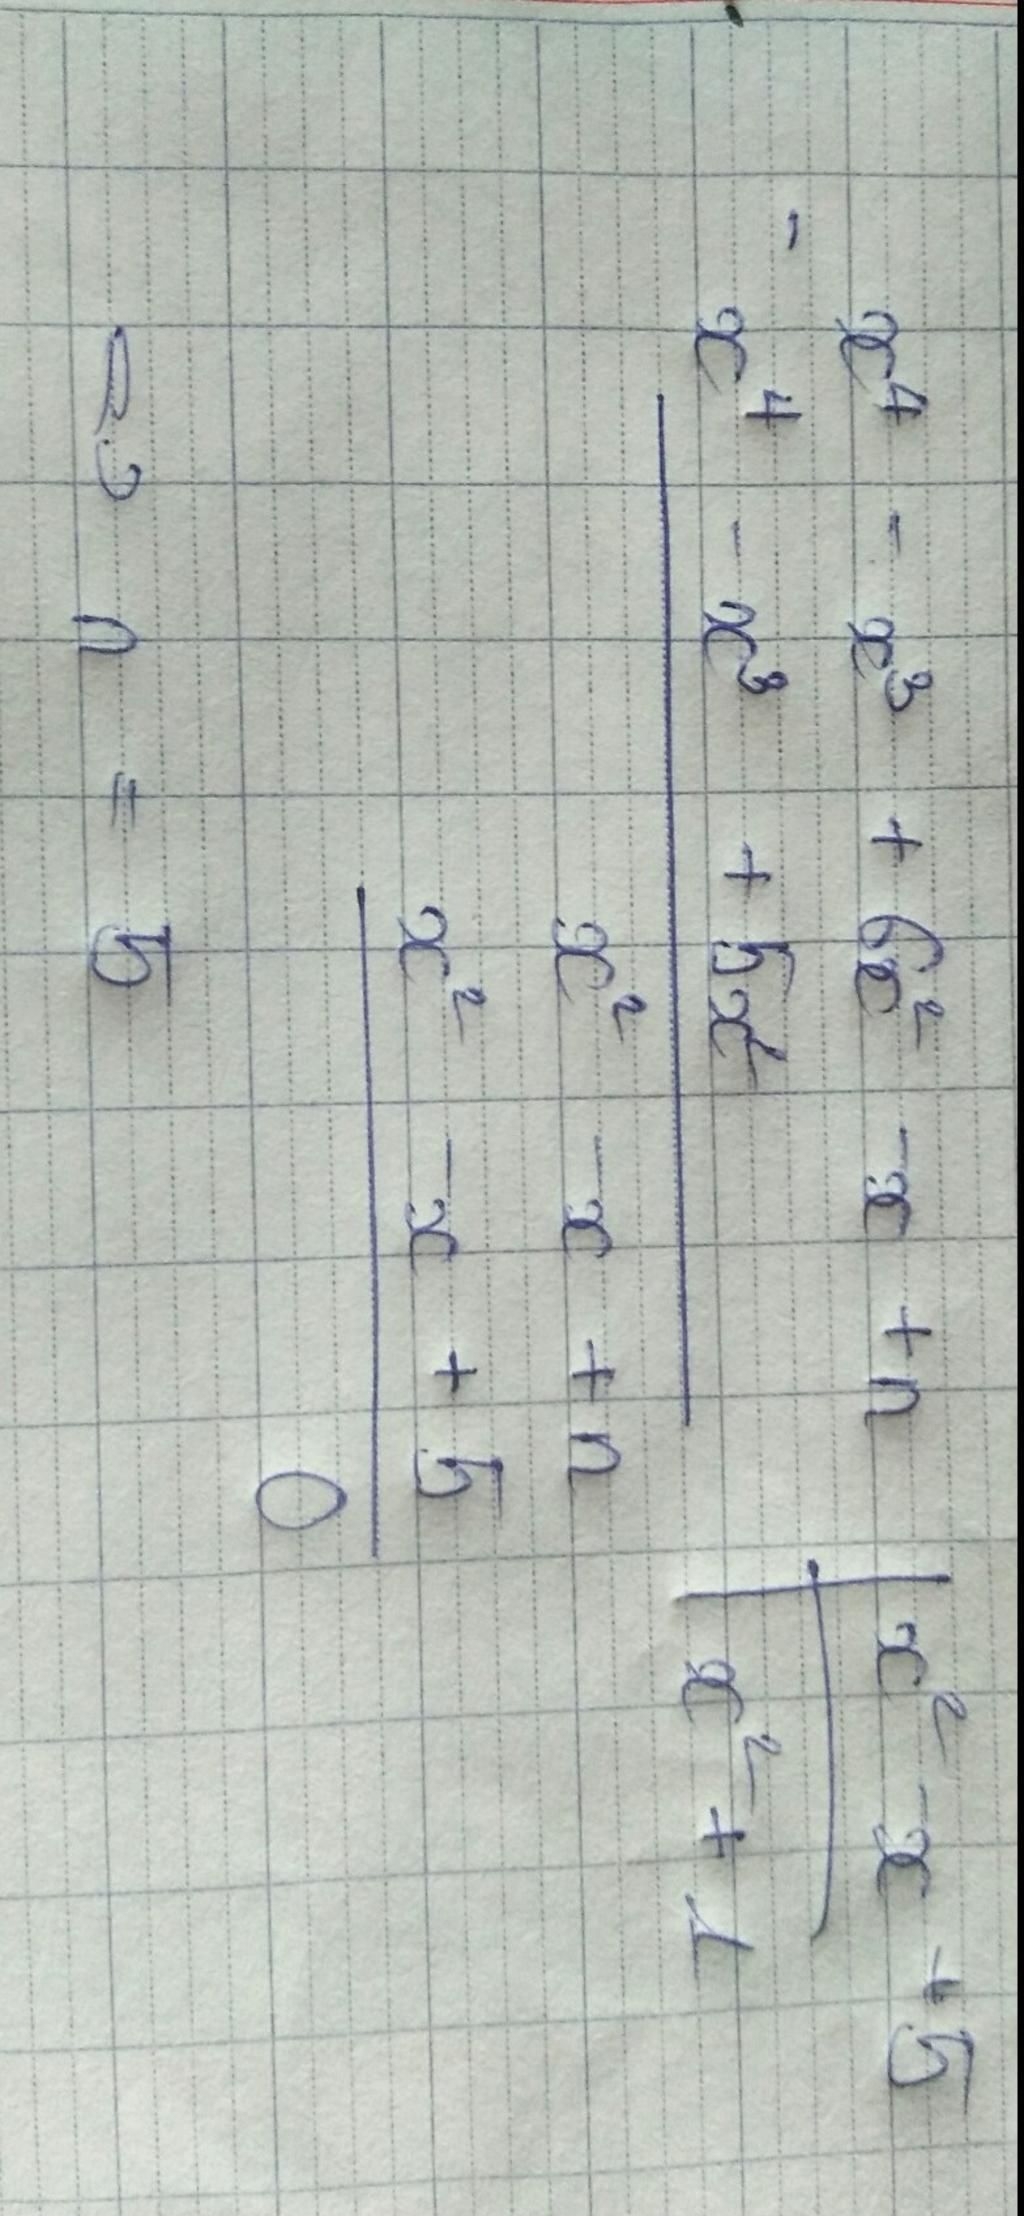 x⁴ - x³ + 6x² - x + n | x² - x + 5
- x⁴ - x³ + 5x² | x² + 1
x² - x + n
x² - x + 5
0
n = 5